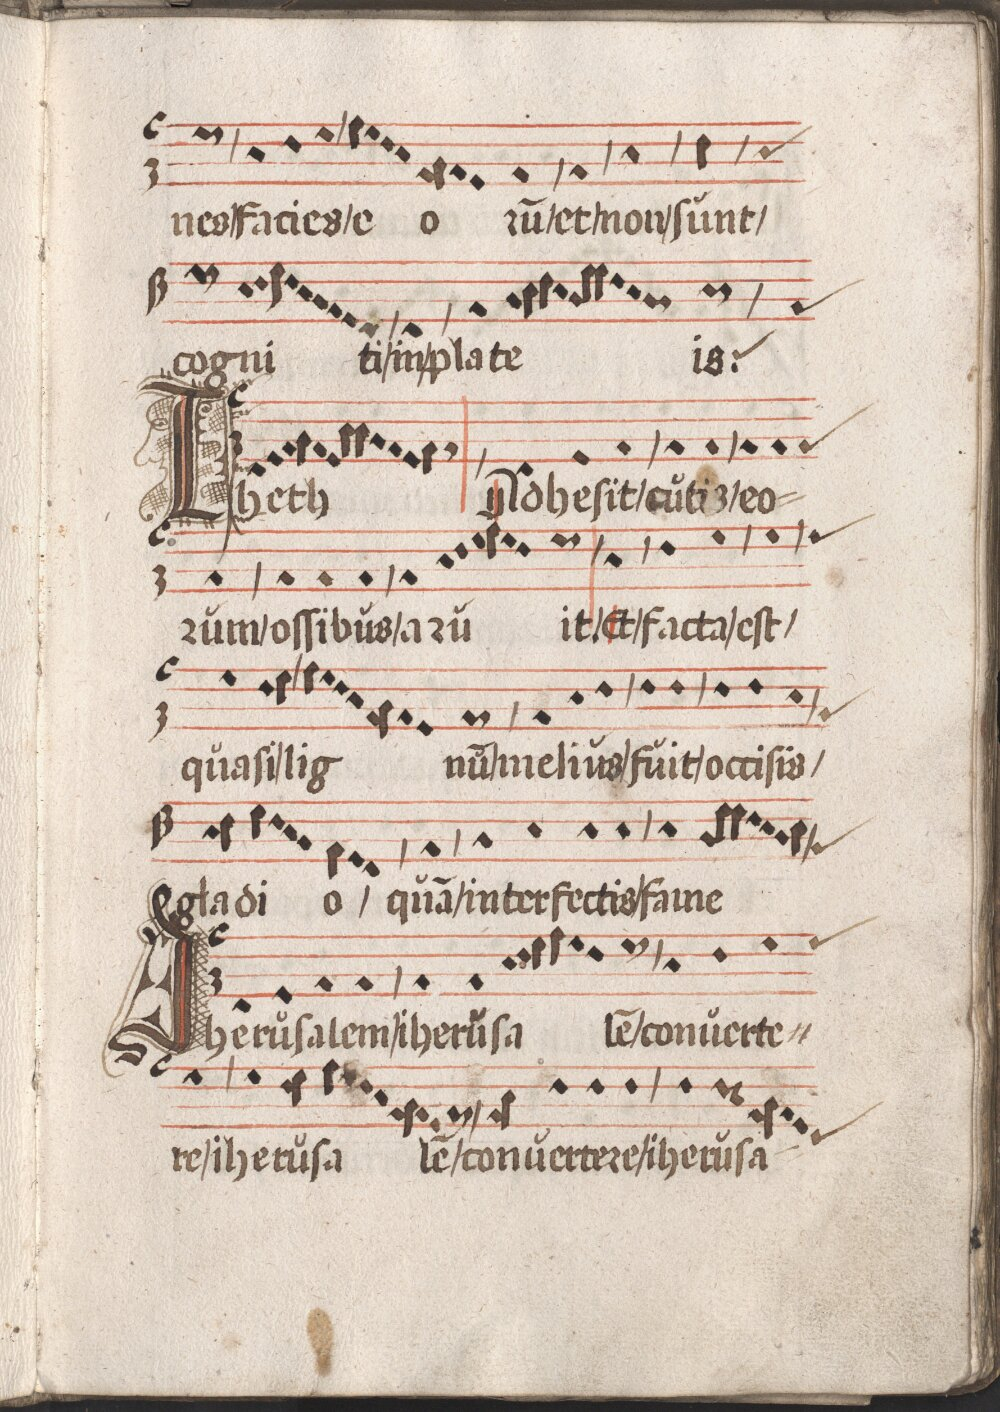 nes/facies/e o rū/et/non/sunt/
cogni ti/in/plate is:
Lheth Adhesit/cutis/eo=
rum/ossibus/aru it/Et/facta/est/
quasi/lig nū/melius/fuit/occisis/
gladi o/ quā/interfectis/fame
Iherusalem/iherusa lē/conuerte=
re/iherusa lē/conuertere/iherusa